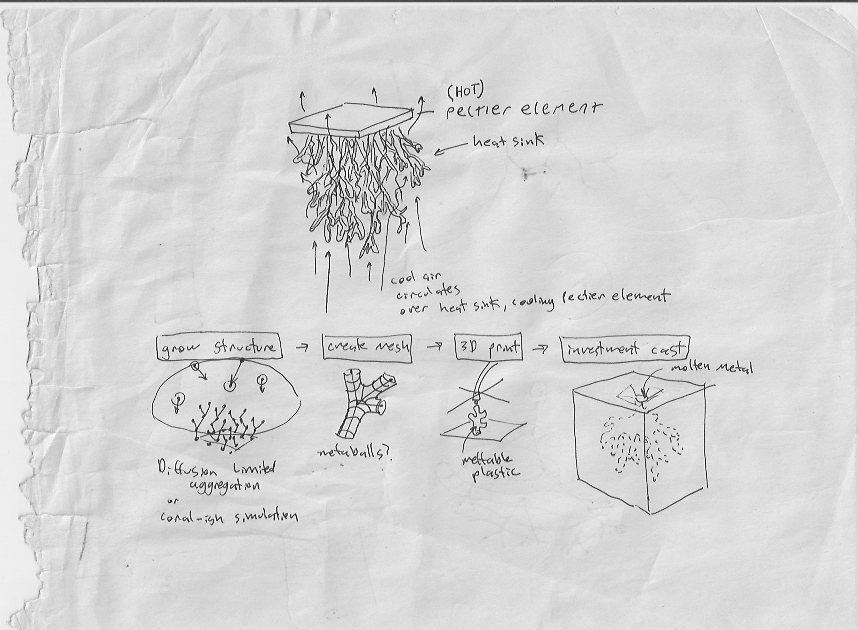 (HOT)
peltier element
heat sink
cool air
circulates
over heat sink, cooling peltier element
grow structure → create mesh → 3D print → investment cast
molten metal
metaballs?
meltable
plastic
Diffusion Limited
aggregation
or
coral-ish simulation